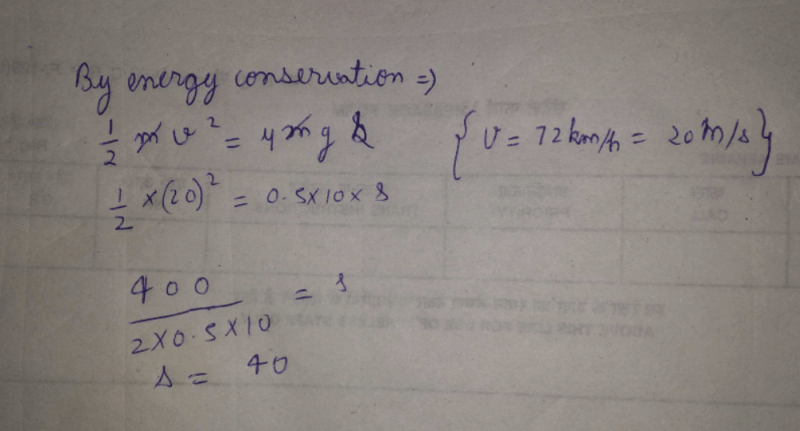 By energy conservation =>
1/2 m v² = μ m g s { v = 72 km/h = 20 m/s }
1/2 × (20)² = 0.5 × 10 × s
400 / 2×0.5×10 = s
s = 40